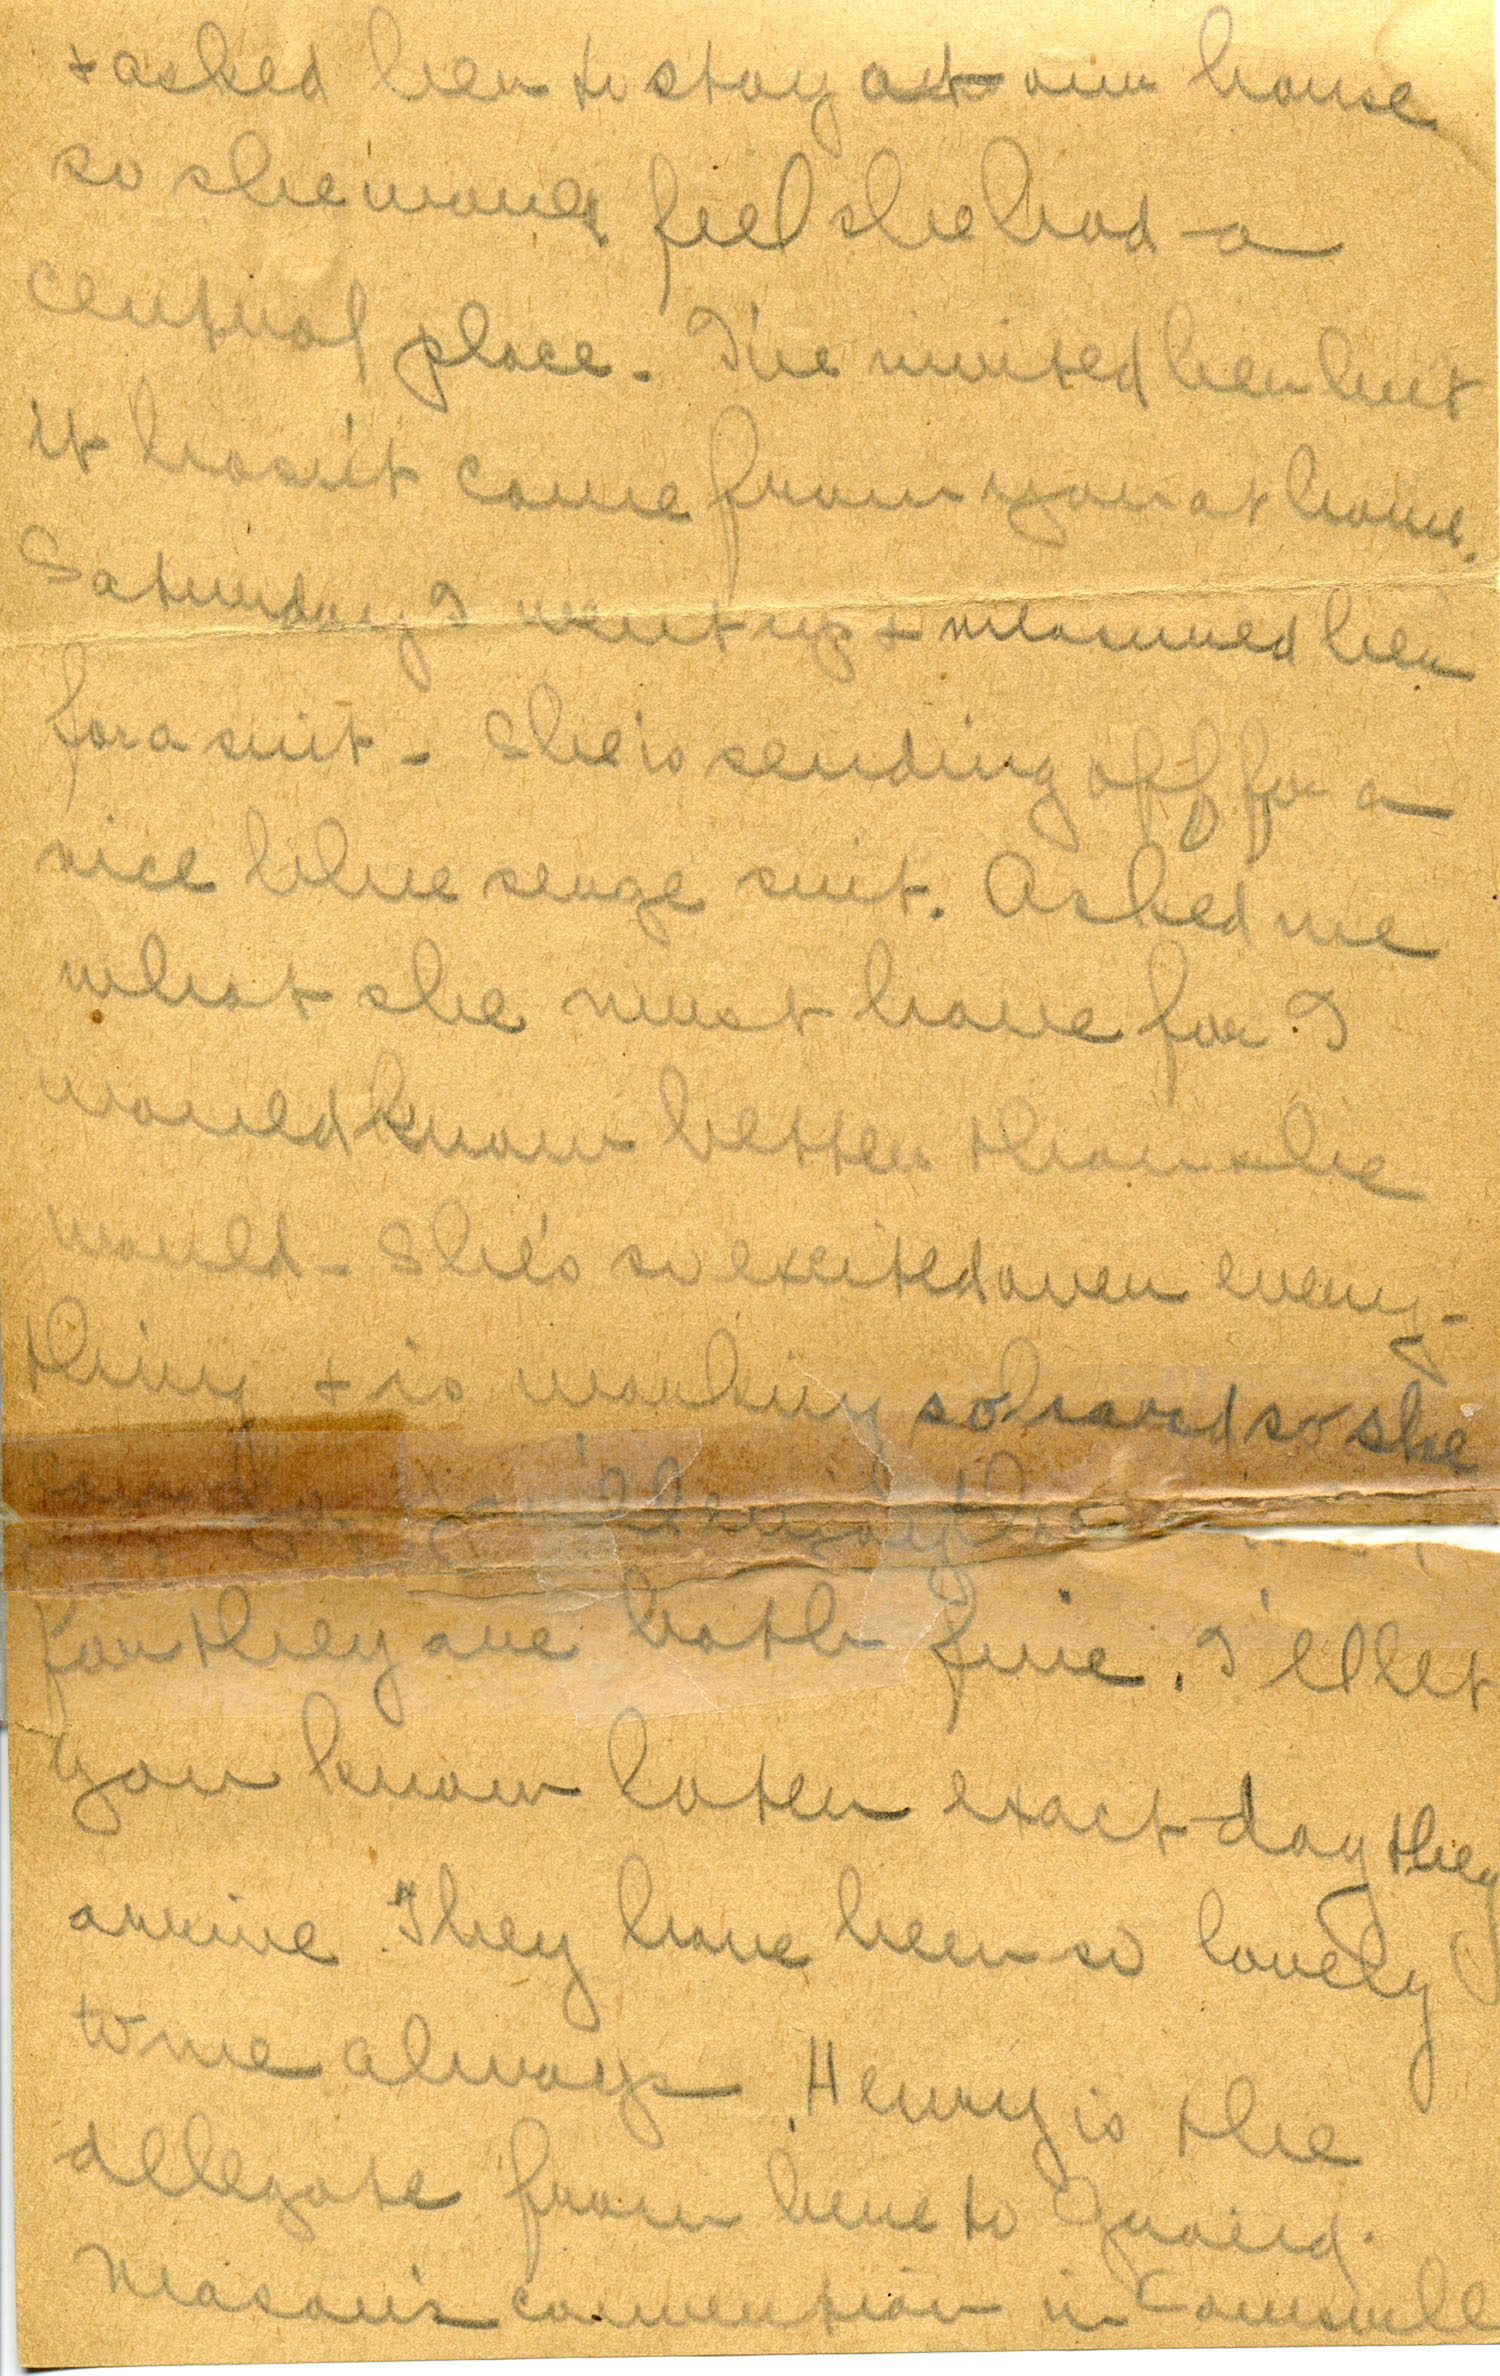 + asked her to stay at our house
so she would feel she had a
central place. I've invited her but
it hasn't come from you at home.
Saturday I went up + measured her
for a suit - She's sending off for a
nice blue serge suit. Asked me
what she must have for I
would know better than she
would - She's so excited over every-
thing + is working so hard so she
will enjoy
for they are both fine. I'll let
you know later exact day they
arrive. They have been so lovely
to me always. Henry is the
dellegate from here to Grand
Mason's convention in